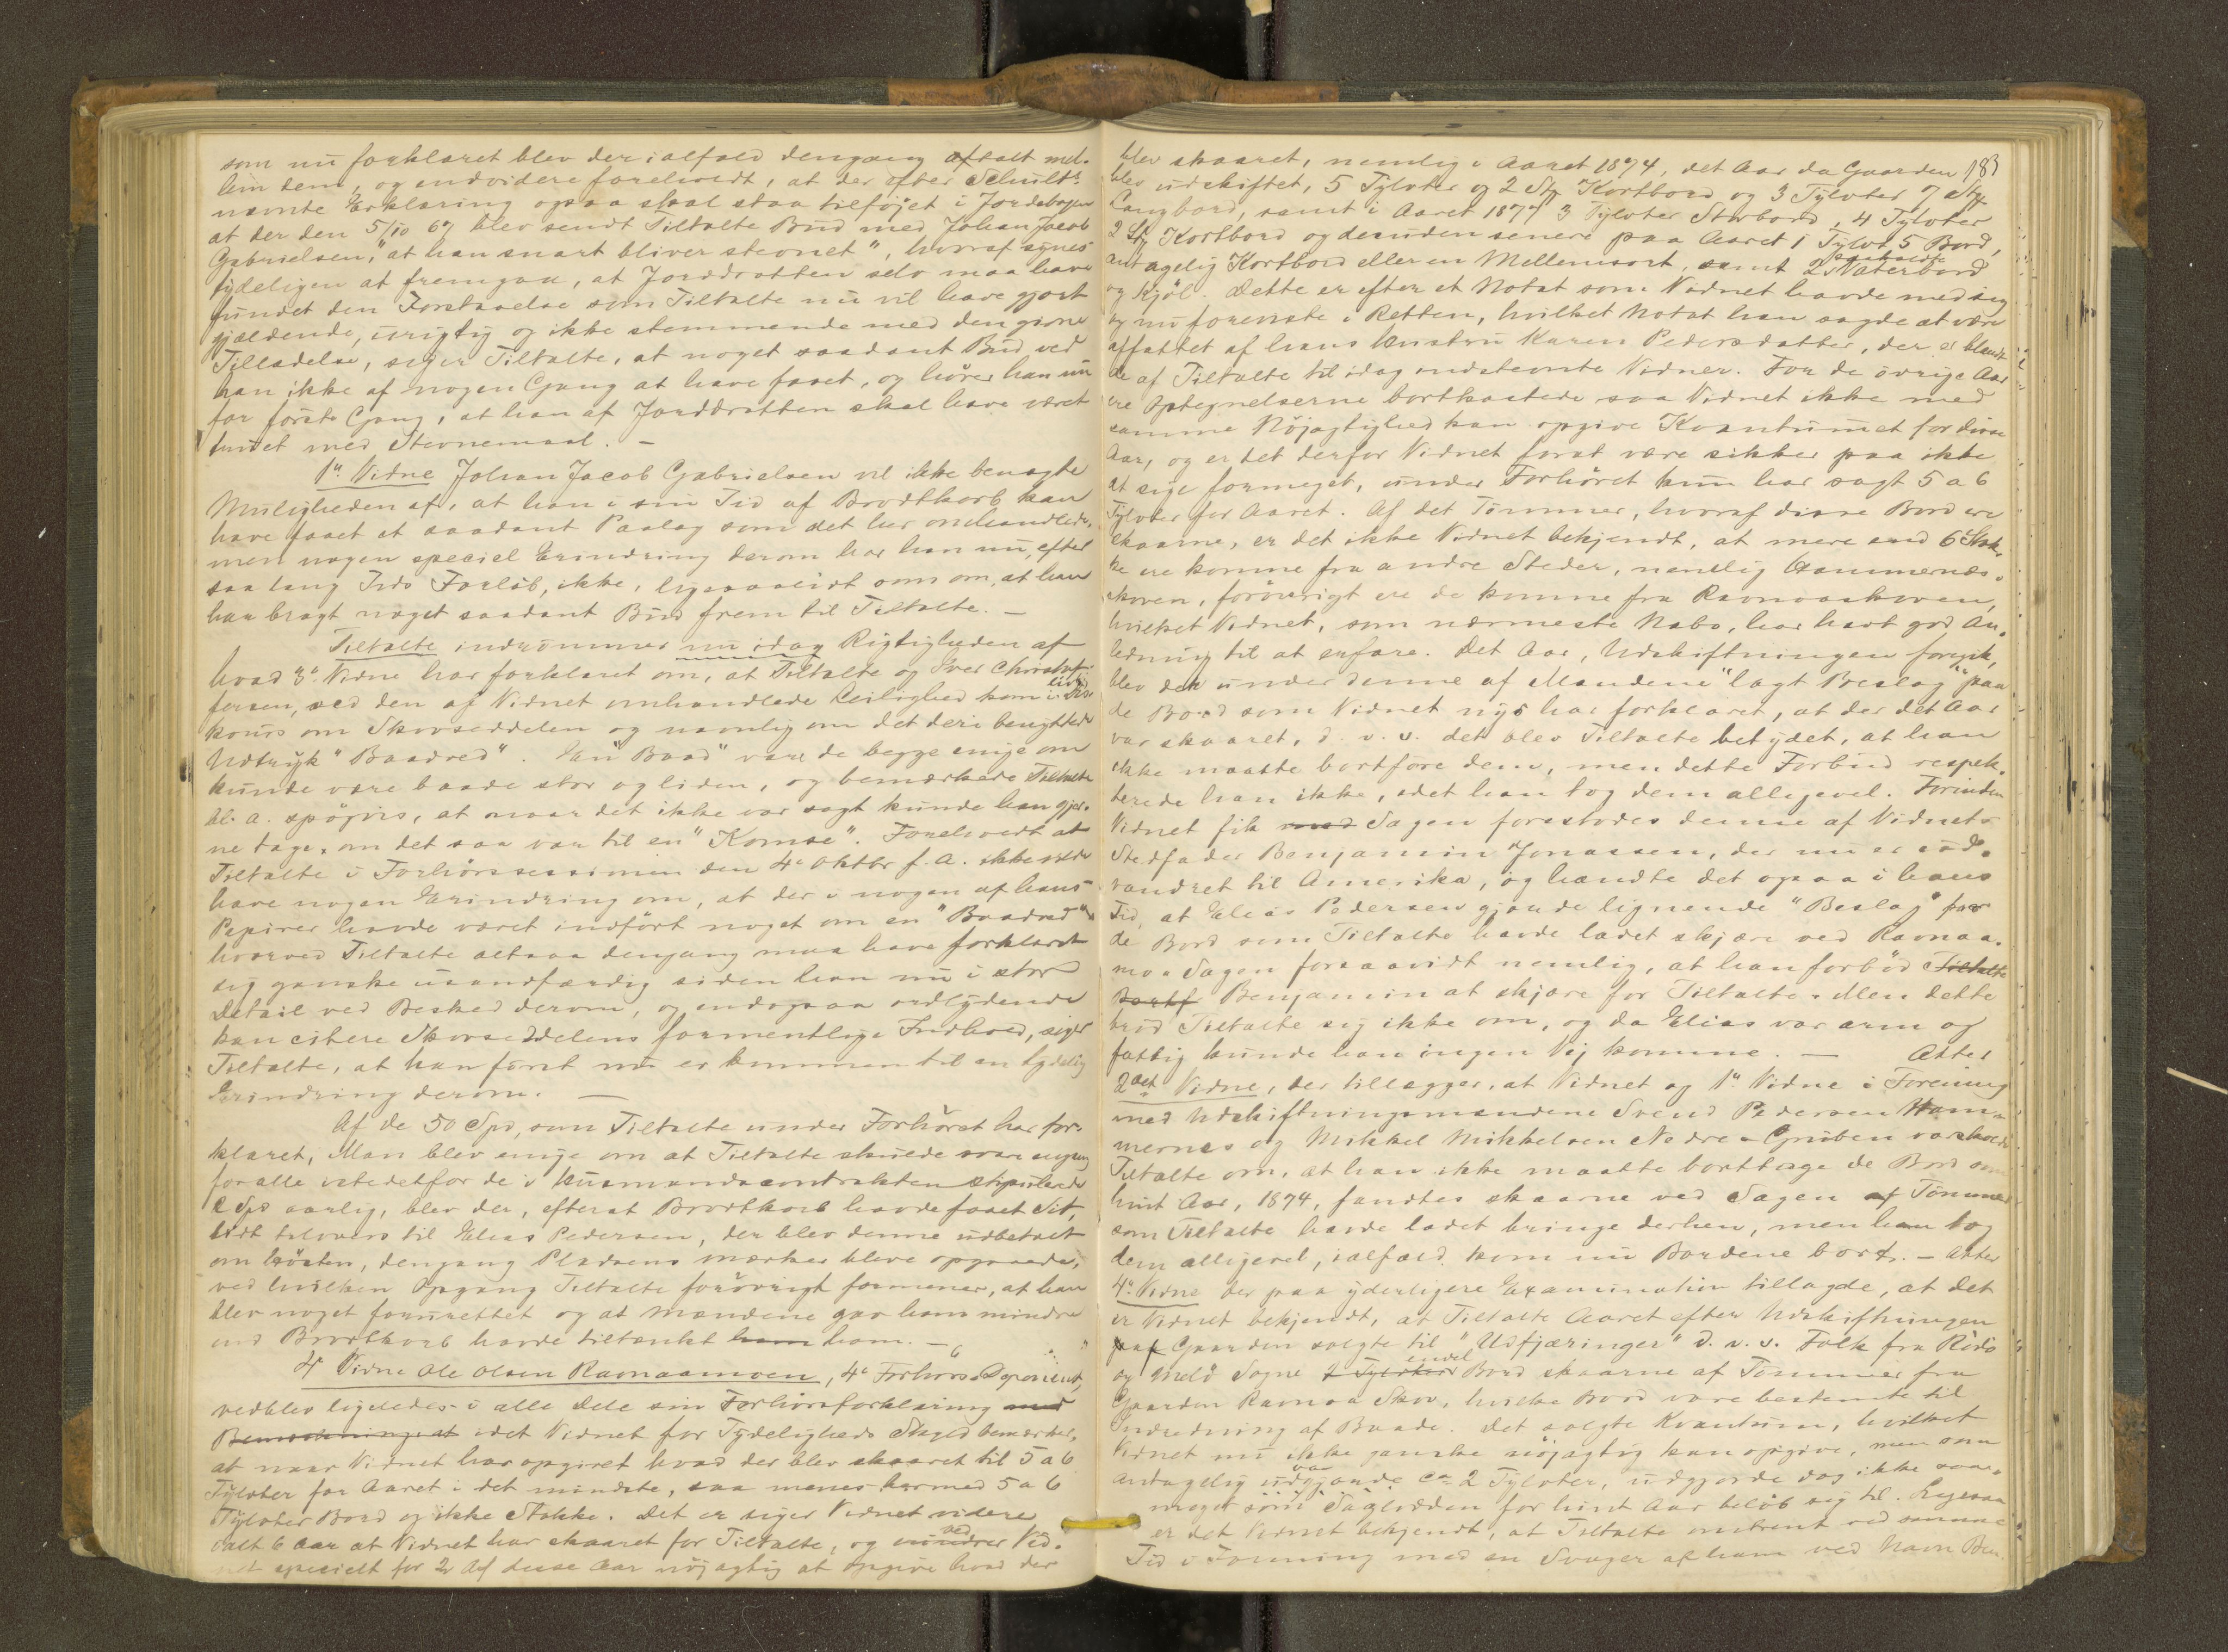 som nu forklaret blev der ialfald dengang aftalt mel-
lem dem, og endvidere foreholdt, at der efter Schults
nævnte Erklæring ogsaa skal staa tilføjet i Jordebogen
at der den 5/10 67 blev sendt Tiltalte Bud med Johan Jacob
Gabrielsen, "at han snart bliver stevnet", hvoraf synes
tydeligen at fremgaa, at Jorddrotten selv maa have
fundet den Forstaaelse som Tiltalte nu vil have gjort
gjældende, urigtig og ikke stemmende med den givne
Tilladelse, siger Tiltalte, at noget saadant Bud ved
han ikke af nogen Gang at have faaet, og hører han nu
for første Gang, at han af Jorddrotten skal have været
truet med Stevnemaal. –
1ste Vidne Johan Jacob Gabrielsen vil ikke benægte
Muligheden af, at han i sin Tid af Brodtkorb kan
have faaet et saadant Paalæg som det her omhandlede,
men nogen speciel Erindring derom har han nu, efter
saa lang Tids Forløb, ikke, ligesaalidt som om, at han
har bragt noget saadant Bud frem til Tiltalte. –
Tiltalte indrømmer nu idag Rigtigheden af
hvad 3die Vidne har forklaret om, at Tiltalte og Iver Christof-
fersen, ved den af Vidnet omhandlede Leilighed kom i Dis-
kours om Skovseddelen og navnlig om det deri benyttede
Udtryk "Baadved". En "Baad" vare de begge enige om
kunde være baade stor og liden, og bemærkede Tiltalte
bl. a. spøgvis, at naar det ikke var sagt kunde han gjer-
ne tage, om det saa var til en "Komse". Foreholdt at
Tiltalte i Forhørssessionen den 4de Oktbr f. A. ikke vilde
have nogen Erindring om, at der i nogen af hans
Papirer havde været indført noget om en "Baadved"
hvorved Tiltalte altsaa dengang maa have forklaret
sig ganske usandfærdig siden han nu i stor
Detail ved Besked derom, og endogsaa ordlydende
kan citere Skovseddelens formentlige Indhold, siger
Tiltalte, at han først nu er kommen til en tydelig
Erindring derom. –
Af de 50 Spd, som Tiltalte under Forhøret har for-
klaret, Man blev enige om at Tiltalte skulde svare engang
for alle istedetfor de i Husmandscontrakten stipulerede
2 Spd aarlig, blev der, efterat Brodtkorb havde faaet Sit,
lidt tilovers til Elias Pedersen, der blev denne udbetalt
om høsten, dengang Pladsens mærker bleve opgaaede,
ved hvilken Opgang Tiltalte forøvrigt formener, at han
blev noget forurettet og at Mændene gav ham mindre
end Brodtkorb havde tiltænkt ham. –
4de Vidne Ole Olsen Ravnaamoen, 4de Forhørs-Deponent,
vedblev ligeledes i alle Dele sin Forhørsforklaring
idet Vidnet for Tydeligheds Skyld bemærker,
at naar Vidnet har opgivet hvad der blev skaaret til 5 a 6
Tylvter for Aaret i det mindste, saa menes hermed 5 a 6
Tylvter Bord og ikke Stokke. Det er siger Vidnet videre
ialt 6 Aar at Vidnet har skaaret for Tiltalte, og ved Vid-
net specielt for 2 af disse Aar nøjagtig at opgive hvad der
183
blev skaaret, nemlig i Aaret 1874, det Aar da Gaarden
blev udskiftet, 5 Tylvter og 2 Stk Kortbord og 3 Tylvter 7 Stk
Langbord, samt i Aaret 1877 3 Tylvter Storbord, 4 Tylvter
2 Stk Kortbord og desuden senere paa Aaret 1 Tylvt 5 Bord,
antagelig Kortbord eller en Mellemsort, samt 2 saakaldte Vaterbord
og Kjøl. Dette er efter et Notat som Vidnet havde med sig
og nu foreviste i Retten, hvilket Notat han sagde at være
affattet af hans Hustru Karen Pedersdatter, der er blandt
de af Tiltalte til idag indstevnte Vidner. For de øvrige Aar
ere Optegnelserne bortkastede saa Vidnet ikke med
samme Nøjagtighed kan opgive Kvantumet for disse
Aar, og er det derfor Vidnet forat være sikker paa ikke
at sige formeget, under Forhøret kun har sagt 5 a 6
Tylvter for Aaret. Af det Tømmer, hvoraf disse Bord ere
skaarne, er det ikke Vidnet bekjendt, at mere end 6 Stok-
ke ere komne fra andre Steder, nemlig Hammernæs-
skoven, forøvrigt ere de komne fra Ravnaaskoven,
hvilket Vidnet, som nærmeste Nabo, har havt god An-
ledning til at erfare. Det Aar, Udskiftningen foregik,
blev der under denne af Mændene "lagt Beslag" paa
de Bord som Vidnet nys har forklaret, at der det Aar
var skaaret, d. v. s. det blev Tiltalte betydet, at han
ikke maatte bortføre dem, men dette Forbud respek-
terede han ikke, idet han tog dem alligevel. Forinden
Vidnet fik Sagen forestodes denne af Vidnets
Stedfader Benjamin Jonassen, der nu er ud-
vandret til Amerika, og hændte det ogsaa i hans
Tid, at Elias Pedersen gjorde lignende "Beslag" paa
de Bord som Tiltalte havde ladet skjære ved Ravnaa-
moa Sagen forsaavidt nemlig, at han forbød Tiltalte
Bortf Benjamin at skjære for Tiltalte. Men dette
brød Tiltalte sig ikke om, og da Elias var arm og
fattig kunde han ingen Vej komme. – Atter
2det Vidne, der tillægger, at Vidnet og 1ste Vidne i Forening
med Udskiftningsmændene Svend Pedersen Ham-
mernæs og Mikkel Mikkelsen Nedre-Gruben varskoede
Tiltalte om, at han ikke maatte borttage de Bord som
hint Aar, 1874, fandtes skaarne ved Sagen af Tømmer
som Tiltalte havde ladet bringe derhen, men han tog
dem alligevel, ialfald kom nu Bordene bort. – Atter
4de Vidne der paa yderligere Examination tillagde, at det
er Vidnet bekjendt, at Tiltalte Aaret efter Udskiftningen
af Gaarden solgte til "Udfjæringer" d. v. s. Folk fra Rødø
og Melø Sogne endel Bord skaarne af Tømmer fra
Gaarden Ravnaa Skov, hvilke Bord vare bestemte til
Indredning af Baade. Det solgte Kvantum, hvilket
Vidnet nu ikke ganske nøjagtig kan opgive, men som
antagelig var ca 2 Tylvter, udgjorde dog ikke saa-
meget som Saglodden for hint Aar beløb sig til. Ligesaa
er det Vidnet bekjendt, at Tiltalte omtrent ved samme
Tid i Forening med en Svoger af ham ved Navn Ben-